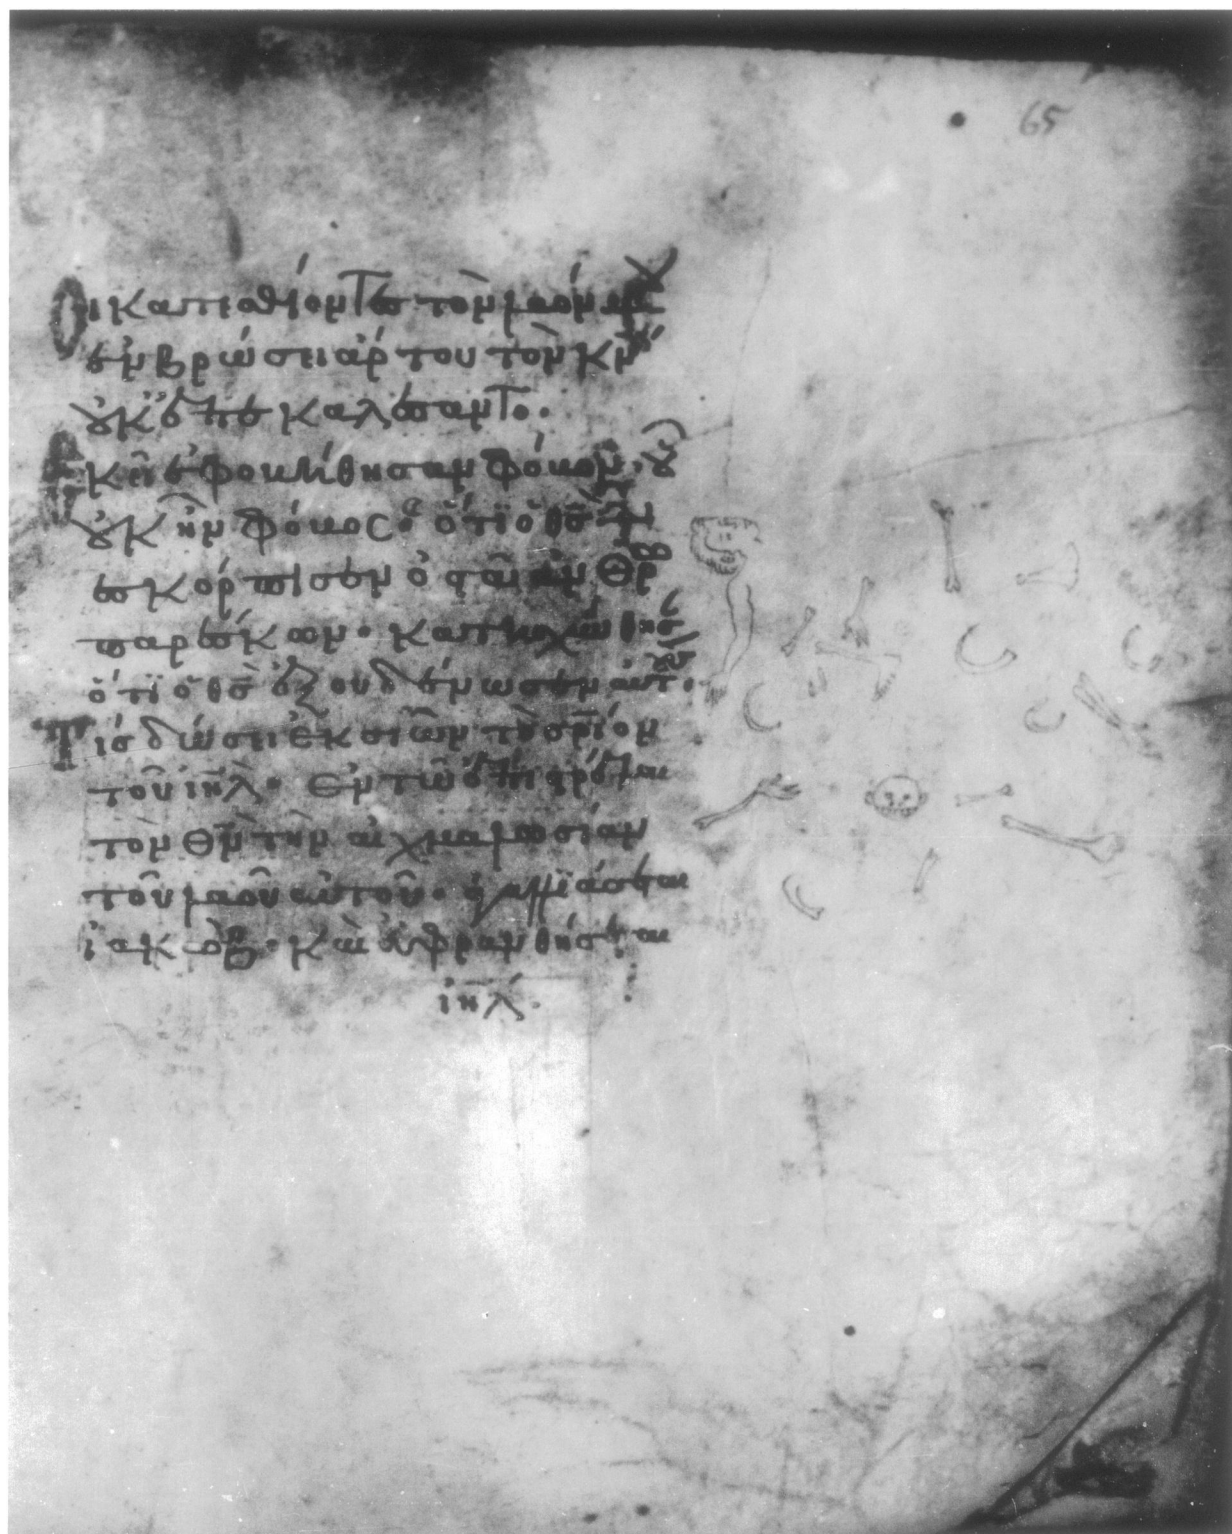 65
Οι κατεσθίοντες τὸν λαόν μου
ἐν βρώσει ἄρτου τὸν κ̅ν̅
οὐκ ἐπεκαλέσαντο.
Ἐκεῖ ἐφοβήθησαν φόβον. οὗ
οὐκ ἦν φόβος. ὅτι ὁ θ̅ς̅
ἐσκόρπισεν ὀστᾶ ἀν̅θ̅ρ̅ω
παρέσκων. κατῃσχύνθησ
ὅτι ὁ θ̅ς̅ ἐξουδένωσεν αὐτ.
Τίς δώσει ἐκ σιὼν τὸ σ̅ρ̅ιον
τοῦ ι̅η̅λ̅. Ἐν τῷ ἐπιστρέψαι
τὸν θ̅ν̅ τὴν αἰχμαλωσίαν
τοῦ λαοῦ αὐτοῦ. ἀγαλλιάσεται
ἰακώβ. καὶ εὐφρανθήσεται
ι̅η̅λ̅.